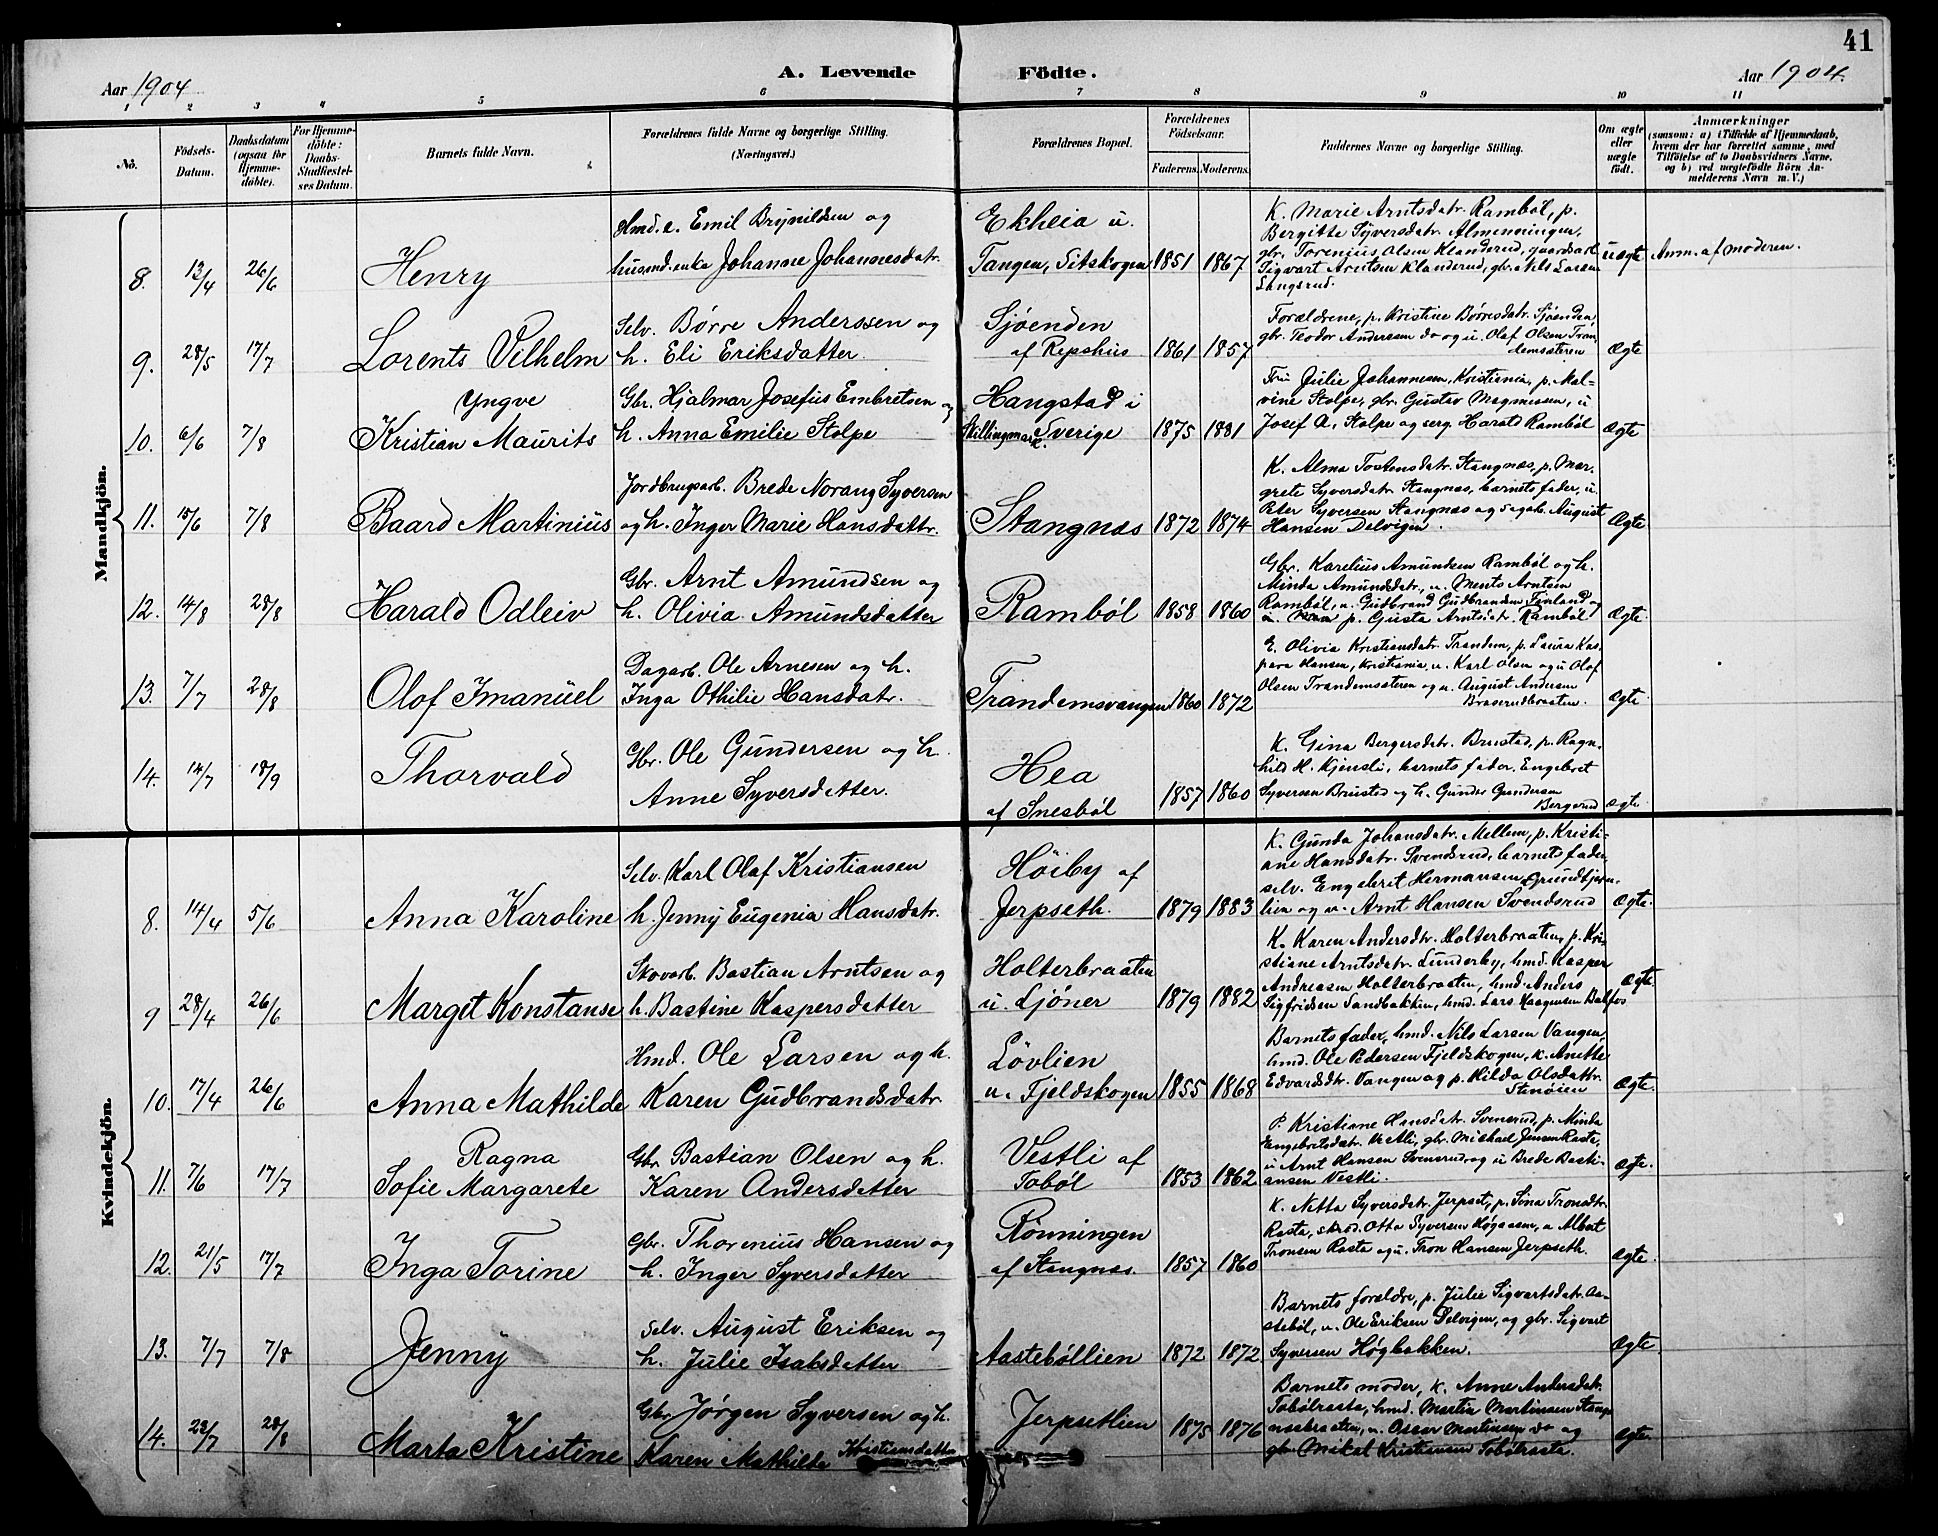 41
Aar 1904
A. Levende Födte.
Aar 1904.
1 2 3 4 5 6 7 8 9 10 11
No.
Födsels-Datum.
Daabsdatum (ogsaa för Hjemmedöbte).
For Hjemmedöbte: Daabs-Stadfæstelses Datum.
Barnets fulde Navn.
Forældrenes fulde Navne og borgerlige Stilling. (Næringsvei.)
Forældrenes Bopæl.
Forældrenes Födselsaar.
Faderens. Moderens.
Faddernes Navne og borgerlige Stilling.
Om ægte eller uægte födt.
Anmærkninger
(saasom: a) i Tilfælde af Hjemmedaab, hvem der har forrettet samme, med Tilföielse af to Daabsvidners Navne, og b) ved uægtefödte Börn Anmelderens Navn m. V.)
Mandkjön.
8. 12/4 26/6 Henry
Hmd. e. Emil Brynildsen og
husmd.enke Johanne Johannesdatr.
Ekheia u.
Tangen, Setskogen 1851 1867
K. Marie Arntsdatr. Rambøl, p.
Bergitte Syversdatr. Almenningen,
gbr. Torenius Olsen Klanderud, gaardsarb.
Sigvart Arntsen Klanderud, gbr. Nils Larsen
Langsrud.
uægte Anm. af moderen.
9. 28/5 17/7 Lorents Vilhelm
Selv. Børre Anderssen og
h. Eli Eriksdatter
Sjøenden
af Repshus 1861 1857
Forældrene, p. Kristine Børresdatr. Sjøenden,
gbr. Teodor Andersen do og u. Olaf Olsen Trandemsæteren
ægte
10. 6/6 7/8 Yngve
Kristian Maurits
Gbr. Hjalmar Josefus Embretsen og
h. Anna Emilie Stolpe
Hangstad i
Skillingmark. Sverige 1875 1881
Fru Julie Johannesen, Kristiania, p. Malvine Stolpe, gbr. Gustav Magnusen, u
Josef A. Stolpe og serg. Harald Rambøl
ægte
11. 15/6 7/8 Baard Martinius
Jordbrugsarb. Brede Norang Syversen
og h. Inger Marie Hansdattr.
Stangnæs 1872 1874
K. Alma Tostensdatr. Stangnæs, p. Margrete Syversdatr. Stangnæs, barnets fader, u.
Peter Syversen Stangnæs og sagarb. August
Hansen Delvigen.
ægte
12. 14/8 28/8 Harald Odleiv
Gbr. Arnt Amundsen og
h. Olivia Amundsdatter
Rambøl 1858 1860
Gbr. Karelius Amundsen Rambøl og h.
Minda Amundsdatr., u. Ments Arntsen
Rambøl, u. Gudbrand Gudbrandsen Finland og
p. Gusta Arntsdr. Rambøl
ægte.
13. 7/7 28/8 Olof Imanuel
Dagarb. Ole Arnesen og h.
Inga Othilie Hansdatr.
Trandemsvangen 1860 1872
E. Olivia Kristiansdatr. Trandem, p. Laura Kaspara Hansen, Kristiania, u. Karl Olsen og u Olof
Olsen Trandemsæteren og u. August Andersen
Braserudbraaten.
ægte
14. 14/7 18/9 Thorvald
Gbr. Ole Gundersen og h.
Anne Syversdatter.
Hea
af Snesbøl 1857 1860
K. Gina Bergersdatr. Brustad, p. Ragnhild H. Kjensli, barnets fader, Engebret
Syversen Brustad og h. Gunder Gundersen
Bergerud
ægte.
Kvindekjön.
8. 14/4 5/6 Anna Karoline
Selv. Karl Olaf Kristiansen
h. Jenny Eugenia Hansdatr.
Høiby af
Jerpseth. 1879 1883
K. Gunda Johansdatr. Mellem, p. Kristiane Hansdatr. Svendsrud, barnets fader,
selv. Engebret Hermansen Grundtjernlien og u. Arnt Hansen Svendsrud
ægte.
9 28/4 26/6 Marget Konstanse
Skovarb. Bastian Arntsen og
h. Bastine Kaspersdatter
Holterbraaten
u. Ljöner 1879 1882
K. Karen Andersdtr. Holterbraaten, p. Kristiane Arntsdatr. Lunderby, hmd. Kasper
Andreasen Holterbraaten, hmd. Anders
Sigfridsen Sandbakken, hmd. Lars Haagensen Balfos
ægte.
10. 17/4 26/6 Anna Mathilde
Hmd. Ole Larsen og h.
Karen Gudbrandsdatr
Lövlien
u. Fjeldskogen 1855 1868
Barnets fader, hmd. Nils Larsen Vangen,
hmd. Ole Pedersen Fjeldskogen, k. Anette
Edvardsdtr. Vangen og p. Hilda Olsdattr.
Stenøien
ægte.
11. 7/6 17/7 Ragna
Sofie Margarete
Gbr. Bastian Olsen og h.
Karen Andersdatter
Vestli af
Tobøl 1853 1862
P. Kristiane Hansdatr. Svensrud, p. Minda
Engebretsdatr. Vestli, gbr. Mikael Jensen Rasta,
u Arnt Hansen Svensrud og u Brede Bastiansen Vestli.
ægte.
12. 21/5 17/7 Inga Torine
Gbr. Thorenius Hansen og
h. Inger Syversdatter
Rønningen
af Stangnæs. 1857 1860
K. Netta Syversdatr. Jerpset, p. Sina Trondtr.
Rasta, skræd. Otto Syversen Høgaasen, u Albert
Tronsen Rasta og u. Tron Hansen Jerpseth.
ægte.
13. 7/7 7/8 Jenny
Selv. August Eriksen og
h. Julie Isaksdatter
Aastebøllien 1872 1872
Barnets forældre, p. Julie Sigvartsdatr. Aastebøl, u. Ole Eriksen Delvigen, og gbr. Sigvart
Syversen Høgbakken.
ægte.
14. 22/7 28/8 Marta Kristine
Gbr. Jørgen Syversen og h.
Karen Mathilde Kristiansdatter
Jerpsetlien 1875 1876
Barnets moder, k. Anne Andersdatr.
Tobølrasta, hmd. Martin Martinsen Stangnæsbraaten, u. Oscar Martinsen do og
gbr. Mikal Kristiansen Tobölrasta.
ægte.